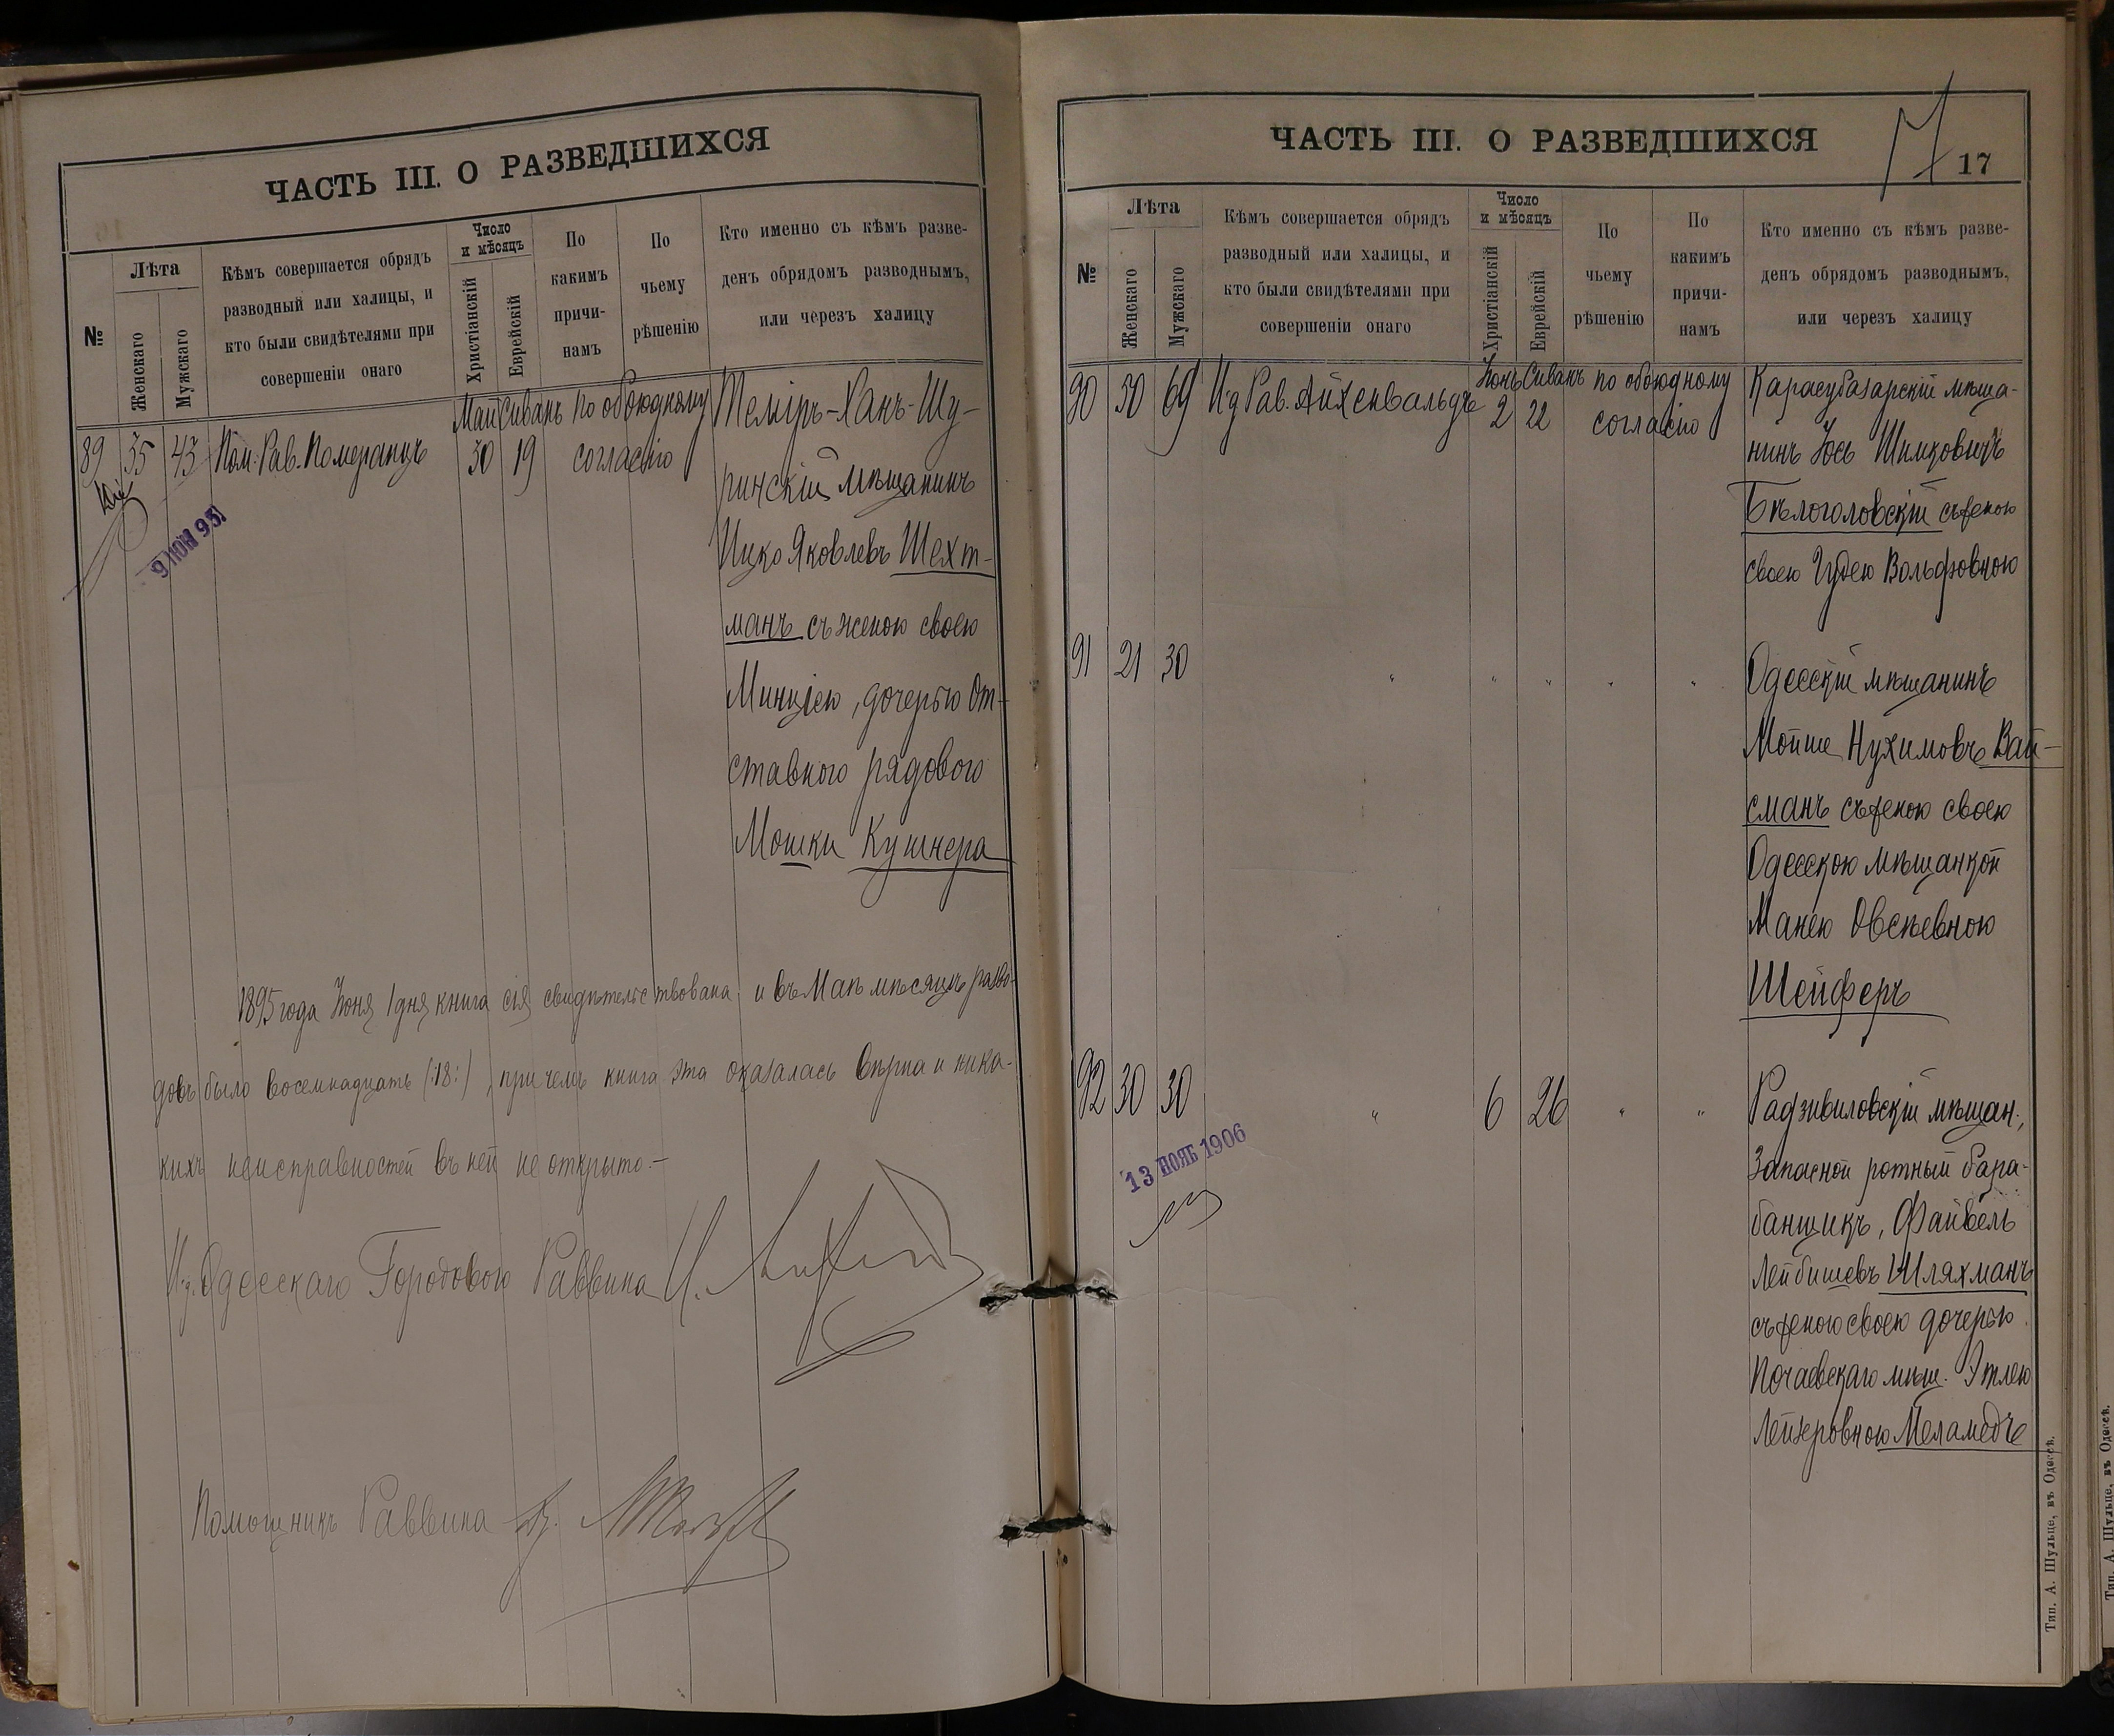 ЧАСТЬ III. О РАЗВЕДШИХСЯ
№
Лѣта
Женскаго
Мужскаго
Кѣмъ совершается обрядъ
разводный или халицы, и
кто были свидѣтелями при
совершеніи онаго
Число
и мѣсяцъ
Христіанскій
Еврейскій
По
какимъ
причи-
намъ
По
чьему
рѣшенію
Кто именно съ кѣмъ разве-
денъ обрядомъ разводнымъ,
или черезъ халицу
89 35 43 Пом. Рав. Померанцъ
Май Сиванъ
30 19
по обоюдному
согласію
Темиръ-Ханъ-Шу-
ринскій мѣщанинъ
Ицко Яковлевъ Шехт-
манъ съ женою своею
Минціею, дочерью от-
ставного рядового
Мошки Кушнера
9 ІЮН 95
1895 года Іюня 1 дня книга сія свидѣтельствована и въ Маѣ мѣсяцѣ разво-
довъ было восемнадцать (:18:), при чемъ книга эта оказалась вѣрна и ника-
кихъ неисправностей въ ней не открыто.-
И.д. Одесскаго Городового Раввина
Помощникъ Раввина
ЧАСТЬ III. О РАЗВЕДШИХСЯ
17
№
Лѣта
Женскаго
Мужскаго
Кѣмъ совершается обрядъ
разводный или халицы, и
кто были свидѣтелями при
совершеніи онаго
Число
и мѣсяцъ
Христіанскій
Еврейскій
По
чьему
рѣшенію
По
какимъ
причи-
намъ
Кто именно съ кѣмъ разве-
денъ обрядомъ разводнымъ,
или черезъ халицу
90 50 69 И д Рав. Айхенвальдъ
Іюнь Сиванъ
2 22
по обоюдному
согласію
Карасубазарскій мѣща-
нинъ Іось Шимковичъ
Бѣлоголовскій съ женою
своею Гудею Вольфовною
91 21 30 " " " " "
Одесскій мѣщанинъ
Мойше Нухимовъ Вай-
сманъ съ женою своею
Одесскою мѣщанкой
Манею Овсѣевною
Шейферъ
92 30 30 " 6 26 " "
Радзивиловскій мѣщан.,
Запасной ротный бара-
банщикъ, Файвель
Лейбишевъ Шляхманъ
съ женою своею дочерью
Почаевскаго мѣщ. Этлею
Лейзеровною Меламедъ
13 НОЯБ 1906
Тип. А. Шульце, въ Одессѣ.
Тип. А. Шульце, въ Одессѣ.